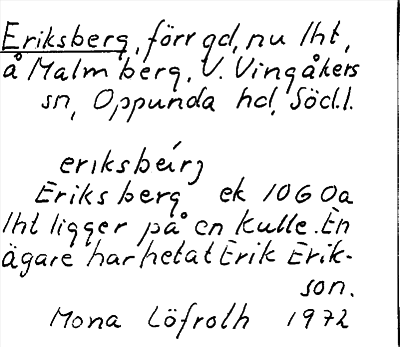 Eriksberg, förr gd, nu lht,
å Malmberg, V. Vingåkers
sn, Oppunda hd, Södl.
eriksbærj
Eriksberg ek 10G0a
lht ligger på en kulle. En
ägare har hetat Erik Erik-
son.
Mona Löfroth 1972